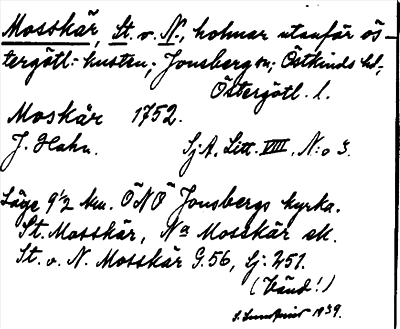 Mosskär, St. o. N., holmar utanför ös-
tergötl.-kusten; Jonsbergs sn; Östkinds hd,
Östergötl. l.
Moskär 1752.
J. Hahn. SjA. Litt. VIII, N:o 3.
Läge 9 1/2 km. ÖNÖ Jonsbergs kyrka.
St. Mosskär, Na Mosskär sk.
St. o. N. Mosskär G. 56, Sj. 251.
(Bänd!)
1939.